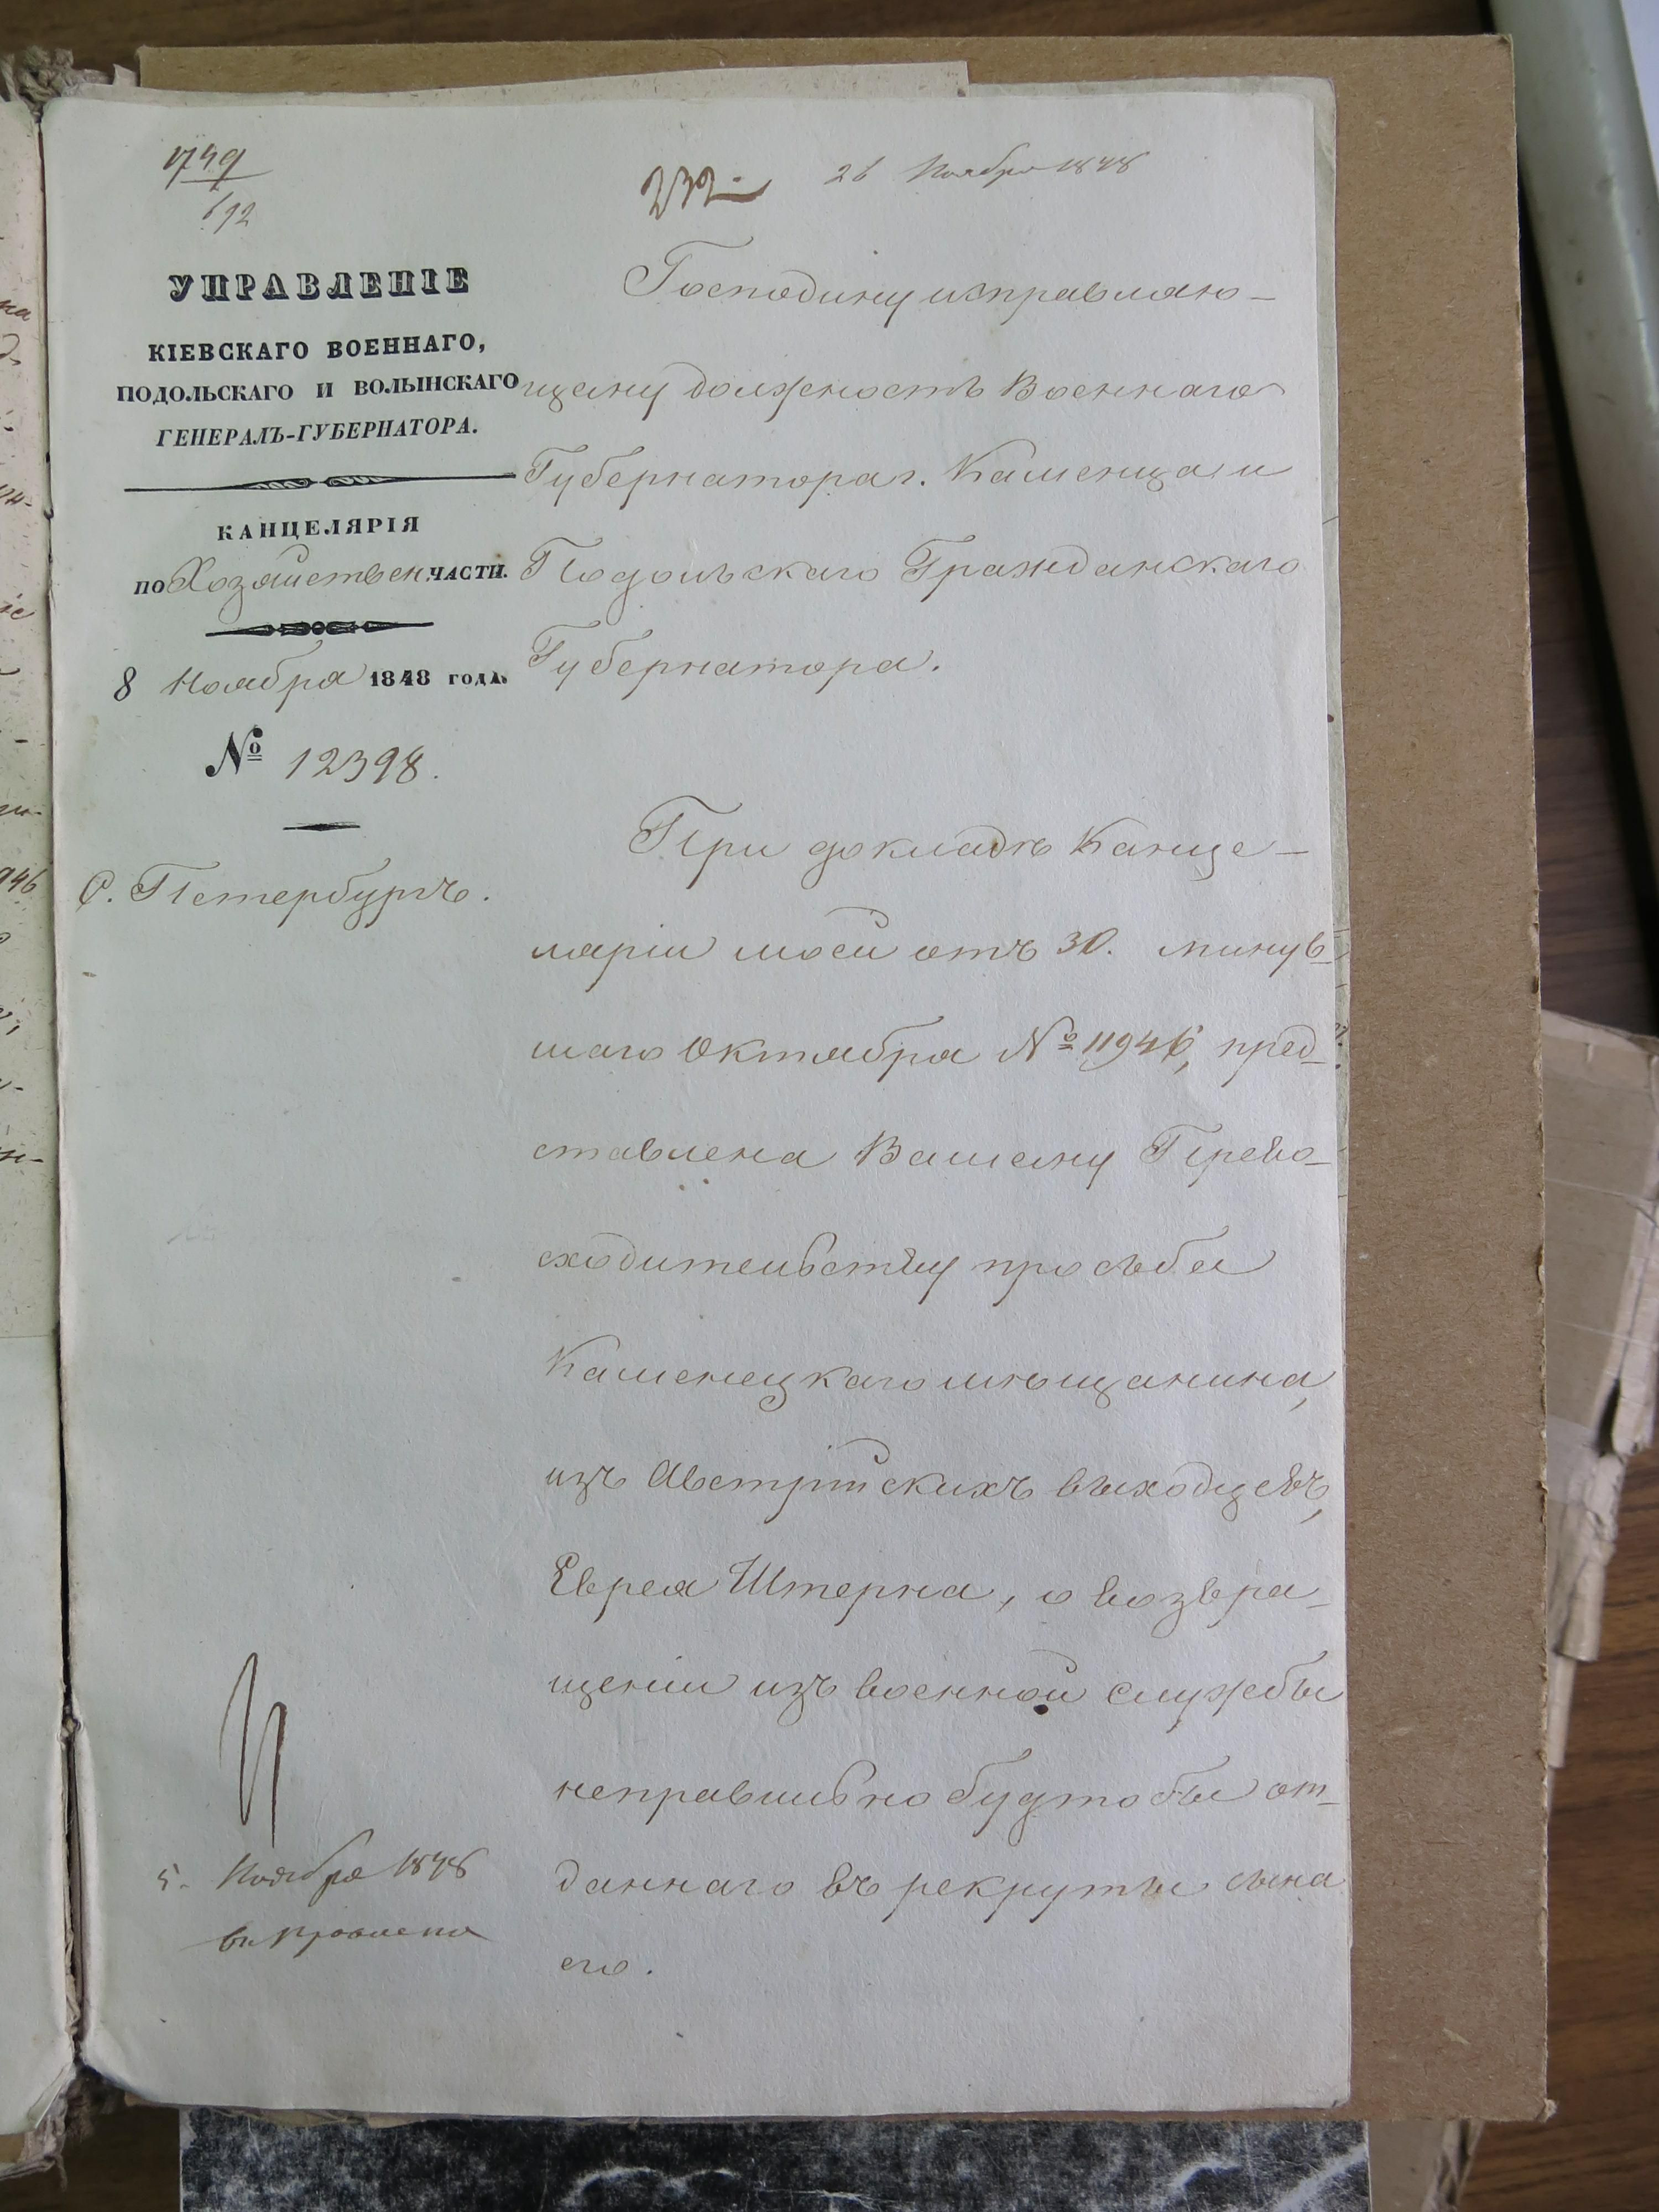 1749
692
232
26 Ноября 1848
УПРАВЛЕНІЕ
КІЕВСКАГО ВОЕННАГО,
ПОДОЛЬСКАГО И ВОЛЫНСКАГО
ГЕНЕРАЛЪ-ГУБЕРНАТОРА.
КАНЦЕЛЯРІЯ
ПО Хозяйствен. ЧАСТИ.
8 Ноября 1848 ГОДА.
№ 12398.
С. Петербургъ.
Господину исправляю-
щему должность Военнаго
Губернатора г. Каменца и
Подольскаго Гражданскаго
Губернатора.
При докладѣ Канце-
ляріи моей отъ 30. минув-
шаго Октября № 11946, пред-
ставлена Вашему Прево-
сходительству просьба
Каменецкаго мѣщанина,
изъ Австрійскихъ выходцевъ,
Еврея Штерна, о возвра-
щеніи изъ военной службы
неправильно будто бы от-
даннаго въ рекруты сына
его.
5. Ноября 1848